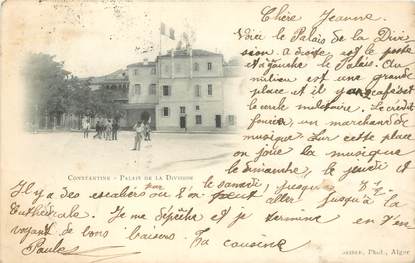 Chère Jeanne
Voici le Palais de la Divi
sion a droite est le poste
et a gauche le Palais. Au
milieu est une grande
place et il y a cafés et
le cercle militaire. Le crédit
foncier, un marchand de
musique. Sur cette place
on joue la musique
le dimanche, le jeudi et
le samedi, jusqu'a 8 ½
CONSTANTINE - PALAIS DE LA DIVISION
Il y a des escaliers par où l'on peut aller jusqu'à la
Cathédrale. Je me dépêche et je termine en t'en
voyant de bons baisers. Ta cousine
Paule
Phot., Alger